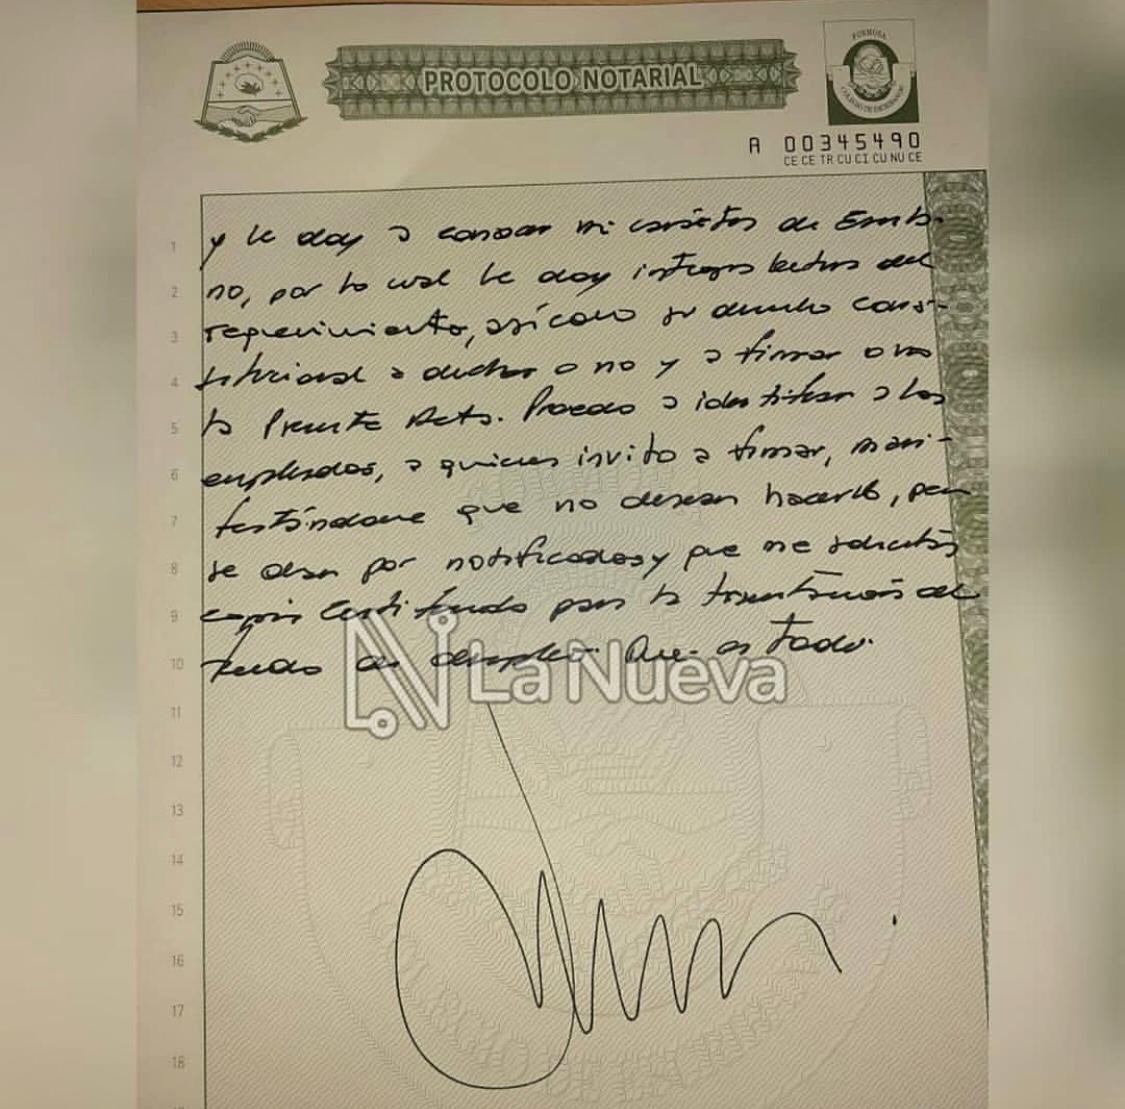 FORMOSA
COLEGIO DE ESCRIBANOS
PROTOCOLO NOTARIAL
A 00345490
CE CE TR CU CI CU NU CE
1 y le doy a conocer mi carácter de Escriba-
2 no, por lo cual le doy íntegra lectura del
3 requerimiento, así como su derecho cons-
4 titucional a declarar o no y a firmar o no
5 la Presente Acta. Procedo a identificar a los
6 empleados, a quienes invito a firmar, mani-
7 festándome que no desean hacerlo, pero
8 se dan por notificados y que me
9 copia para la del
10 de Que es todo.
La Nueva
11
12
13
14
15
16
17
18